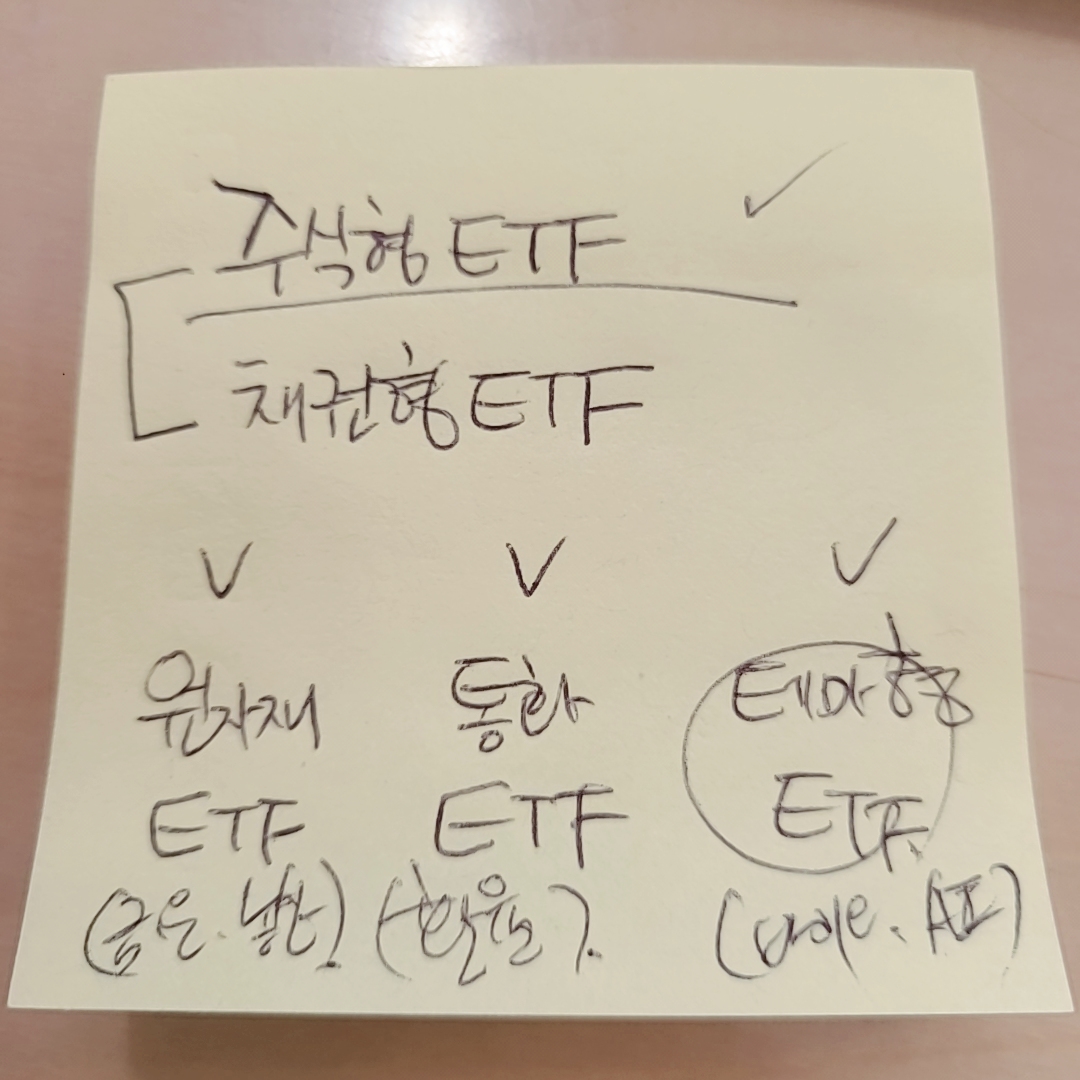 주식형 ETF
채권형 ETF
원자재 통화 테마형
ETF ETF ETF
(금은. (환율). (바이오. AI)